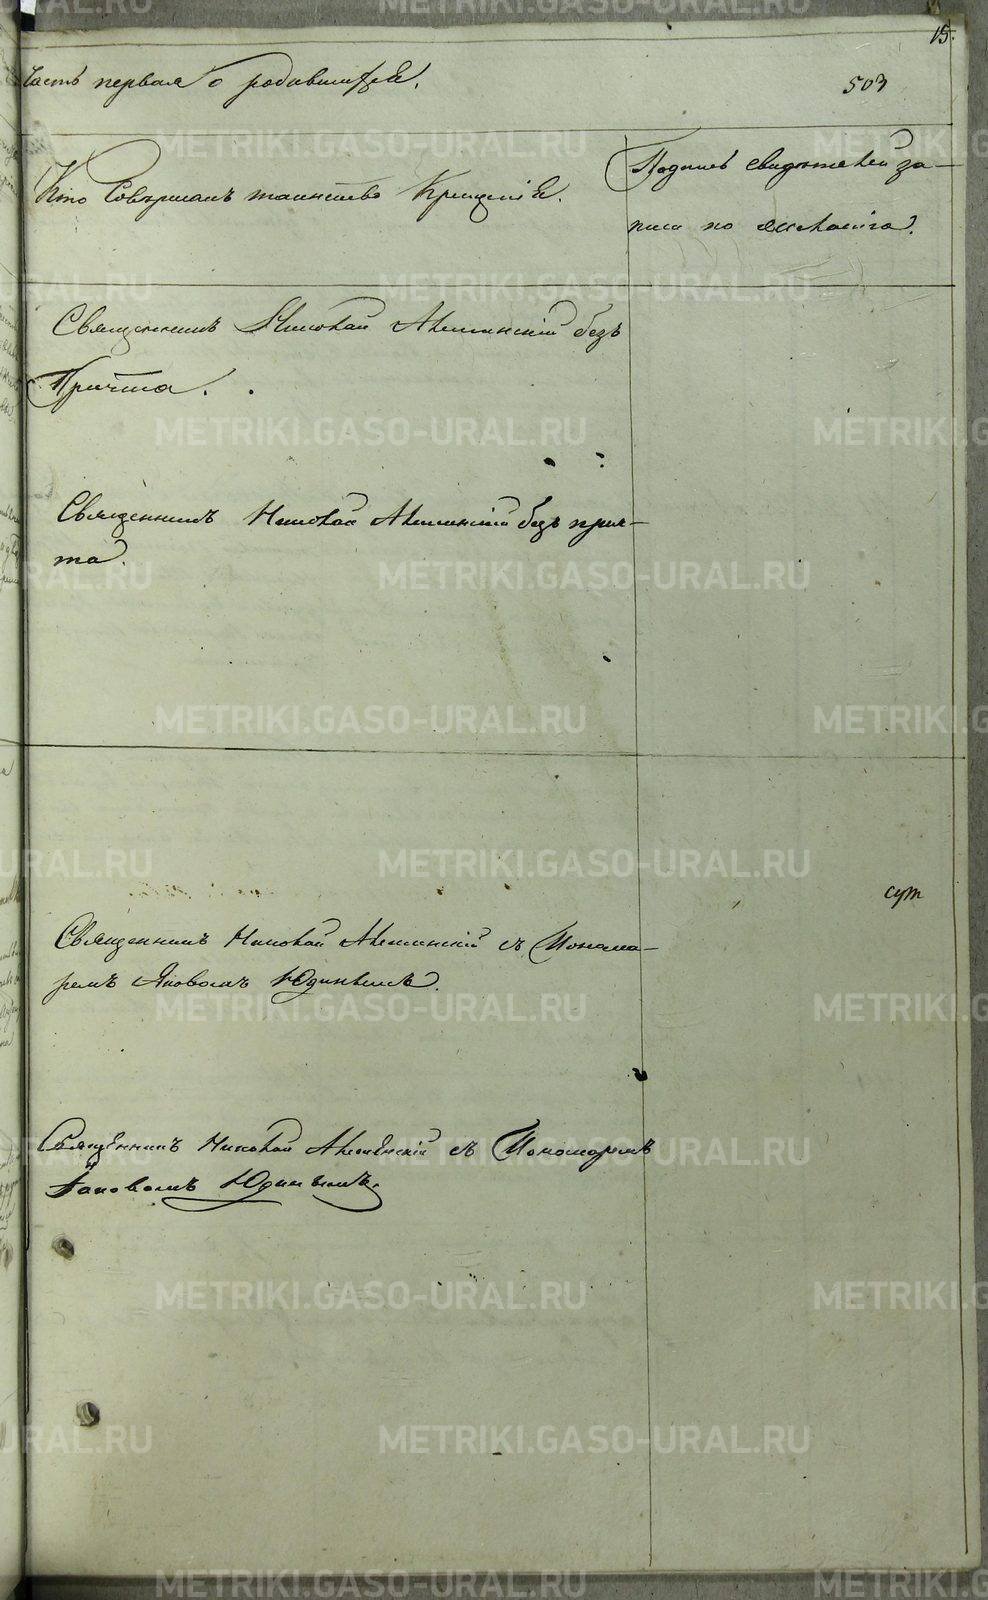 15.
Часть первая о родившихся.
503
Кто Совершалъ таинство Крещенія.
Подпись свидѣтелей за-
писи по желанію.
Священникъ Николай Аксинскій безъ
Причта.
Священникъ Николай безъ прич-
та.
Священникъ Николай съ Понома-
ремъ Яковомъ Юдинымъ.
сут
Священникъ Николай съ Пономаремъ
Яковомъ Юдинымъ.
METRIKI.GASO-URAL.RU